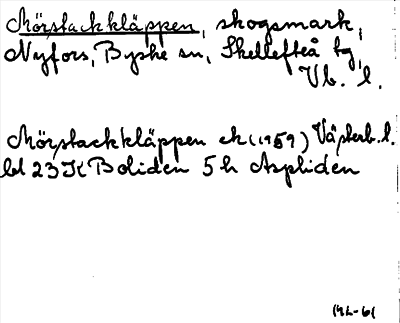 Mörstackkläppen, skogsmark,
Nyfors, Byske sn, Skellefteå tg,
Vb. l.
Mörstackkläppen ek (1959) Västerb. l.
bl 23 K Boliden 5 h Aspliden